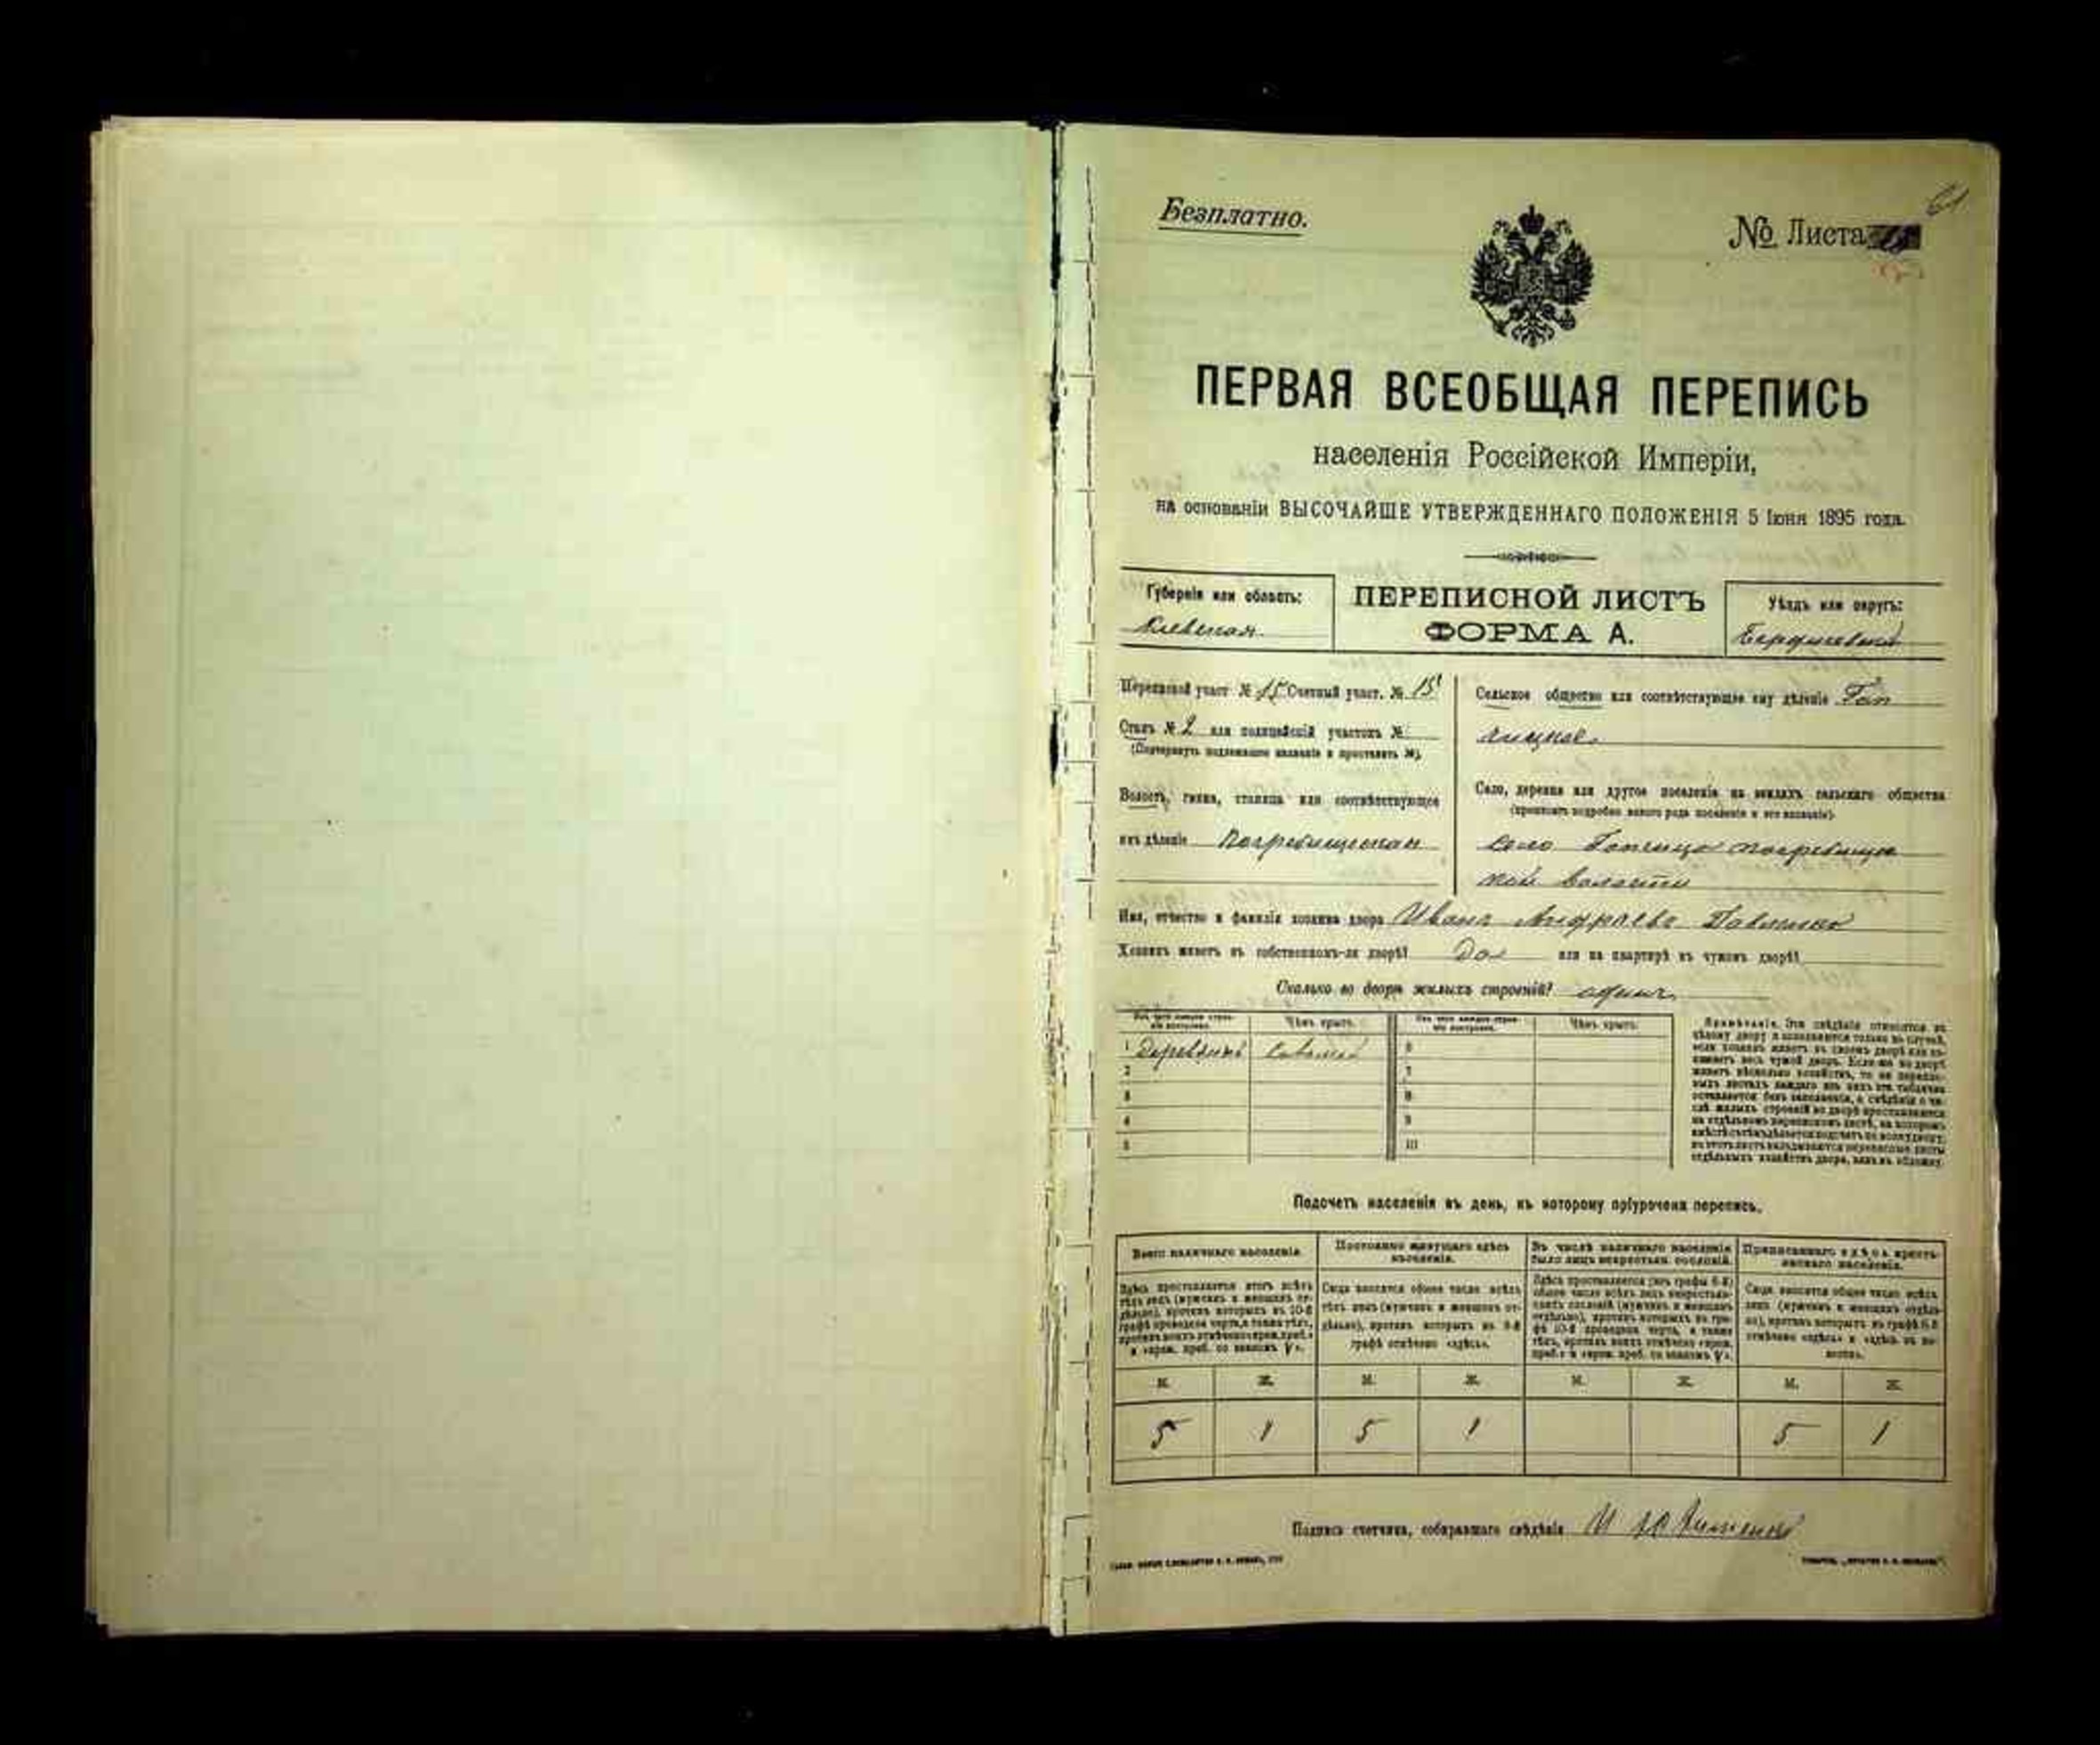 61
Безплатно.
№ Листа
ПЕРВАЯ ВСЕОБЩАЯ ПЕРЕПИСЬ
населенія Россійской Имперіи,
на основаніи ВЫСОЧАЙШЕ УТВЕРЖДЕННАГО ПОЛОЖЕНІЯ 5 Іюня 1895 года.
Губернія или область:
Кіевская
ПЕРЕПИСНОЙ ЛИСТЪ
ФОРМА А.
Уѣздъ или округъ:
Бердичевскій
Переписной участ. № 15 Счетный участ. № 15
Станъ № 2 или полицейскій участокъ №
(Подчеркнуть подлежащее названіе и проставить №).
Волость, гмина, станица или соотвѣтствующее
имъ дѣленіе Погребищенская
Сельское общество или соотвѣтствующее ему дѣленіе Гоп
чицкое
Село, деревня или другое поселеніе на земляхъ сельскаго общества
(прописать подробно какого рода поселеніе и его названіе).
село Гопчица Погребищен
ской волости
Имя, отчество и фамилія хозяина двора Иванъ Андреевъ
Хозяинъ живетъ въ собственномъ-ли дворѣ? да или на квартирѣ въ чужомъ дворѣ?
Сколько во дворѣ жилыхъ строеній? одинъ
Изъ чего каждое строе-
ніе построено.
Чѣмъ крыто.
Изъ чего каждое строе-
ніе построено.
Чѣмъ крыто.
1 деревянъ соломой 6
2 7
3 8
4 9
5 10
Примѣчаніе. Эти свѣдѣнія относятся къ
цѣлому двору и заполняются только въ случаѣ,
если хозяинъ живетъ въ своемъ дворѣ или за-
нимаетъ весь чужой дворъ. Если-же во дворѣ
живетъ нѣсколько хозяйствъ, то на перепис-
ныхъ листахъ каждаго изъ нихъ эта табличка
оставляется безъ заполненія, а свѣдѣнія о чи-
слѣ жилыхъ строеній во дворѣ проставляются
на отдѣльномъ переписномъ листѣ, на которомъ
вмѣстѣ съ тѣмъ дѣлается подсчетъ по всему двору;
въ этотъ листъ вкладываются переписные листы
отдѣльныхъ хозяйствъ двора, какъ въ обложку.
Подсчетъ населенія въ день, къ которому пріурочена перепись.
Всего наличнаго населенія.
Здѣсь проставляется итогъ всѣхъ
тѣхъ лицъ (мужчинъ и женщинъ от-
дѣльно), противъ которыхъ въ 10-й
графѣ проведена черта, а также тѣхъ,
противъ коихъ отмѣчено «врем. преб.»
и «врем. преб. со знакомъ V».
Постоянно живущаго здѣсь
населенія.
Сюда вносится общее число всѣхъ
тѣхъ лицъ (мужчинъ и женщинъ от-
дѣльно), противъ которыхъ въ 9-й
графѣ отмѣчено «здѣсь».
Въ числѣ наличнаго населенія
было лицъ некрестьян. сословій.
Здѣсь проставляется (изъ графы 6-й)
общее число всѣхъ лицъ некрестьян-
скихъ сословій (мужчинъ и женщинъ
отдѣльно), противъ которыхъ въ гра-
фѣ 10-й проведена черта, а также
тѣхъ, противъ коихъ отмѣчено «врем.
преб.» и «врем. преб. со знакомъ V».
Приписаннаго здѣсь кресть-
янскаго населенія.
Сюда вносится общее число всѣхъ
лицъ (мужчинъ и женщинъ отдѣль-
но), противъ которыхъ въ графѣ 8-й
отмѣчено «здѣсь» и «здѣсь въ во-
лости».
м. ж. м. ж. м. ж. м. ж.
5 1 5 1 5 1
Подпись счетчика, собиравшаго свѣдѣнія